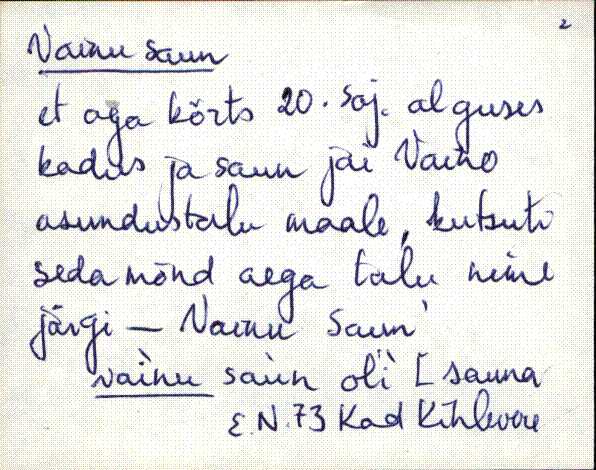 2
Vainu saun
et aga kõrts 20. saj. alguses
kadus ja saun jäi Vaino
asundustalu maale, kutsuti
seda mõnd aega talu nime
järgi — Vainu saun'
vàinu saùn ol'i [ sauna
E.N. 73 Kad Kihlevere